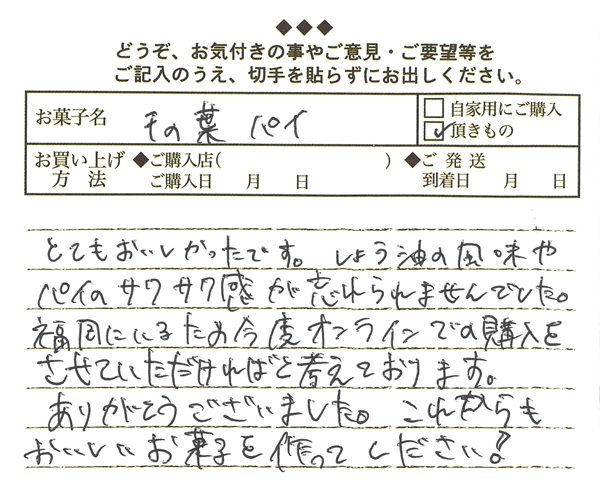 ◆◆◆
どうぞ、お気付きの事やご意見・ご要望等を
ご記入のうえ、切手を貼らずにお出しください。
お菓子名 その葉 パイ □ 自家用にご購入
☑ 頂きもの
お買い上げ方法 ◆ご購入店( ) ◆ご発送
ご購入日 月 日 到着日 月 日
とてもおいしかったです。しょう油の風味や
パイのサクサク感が忘れられませんでした。
福岡にいるため今度オンラインでの購入を
させていただければと考えております。
ありがとうございました。これからも
おいしいお菓子を作ってください!